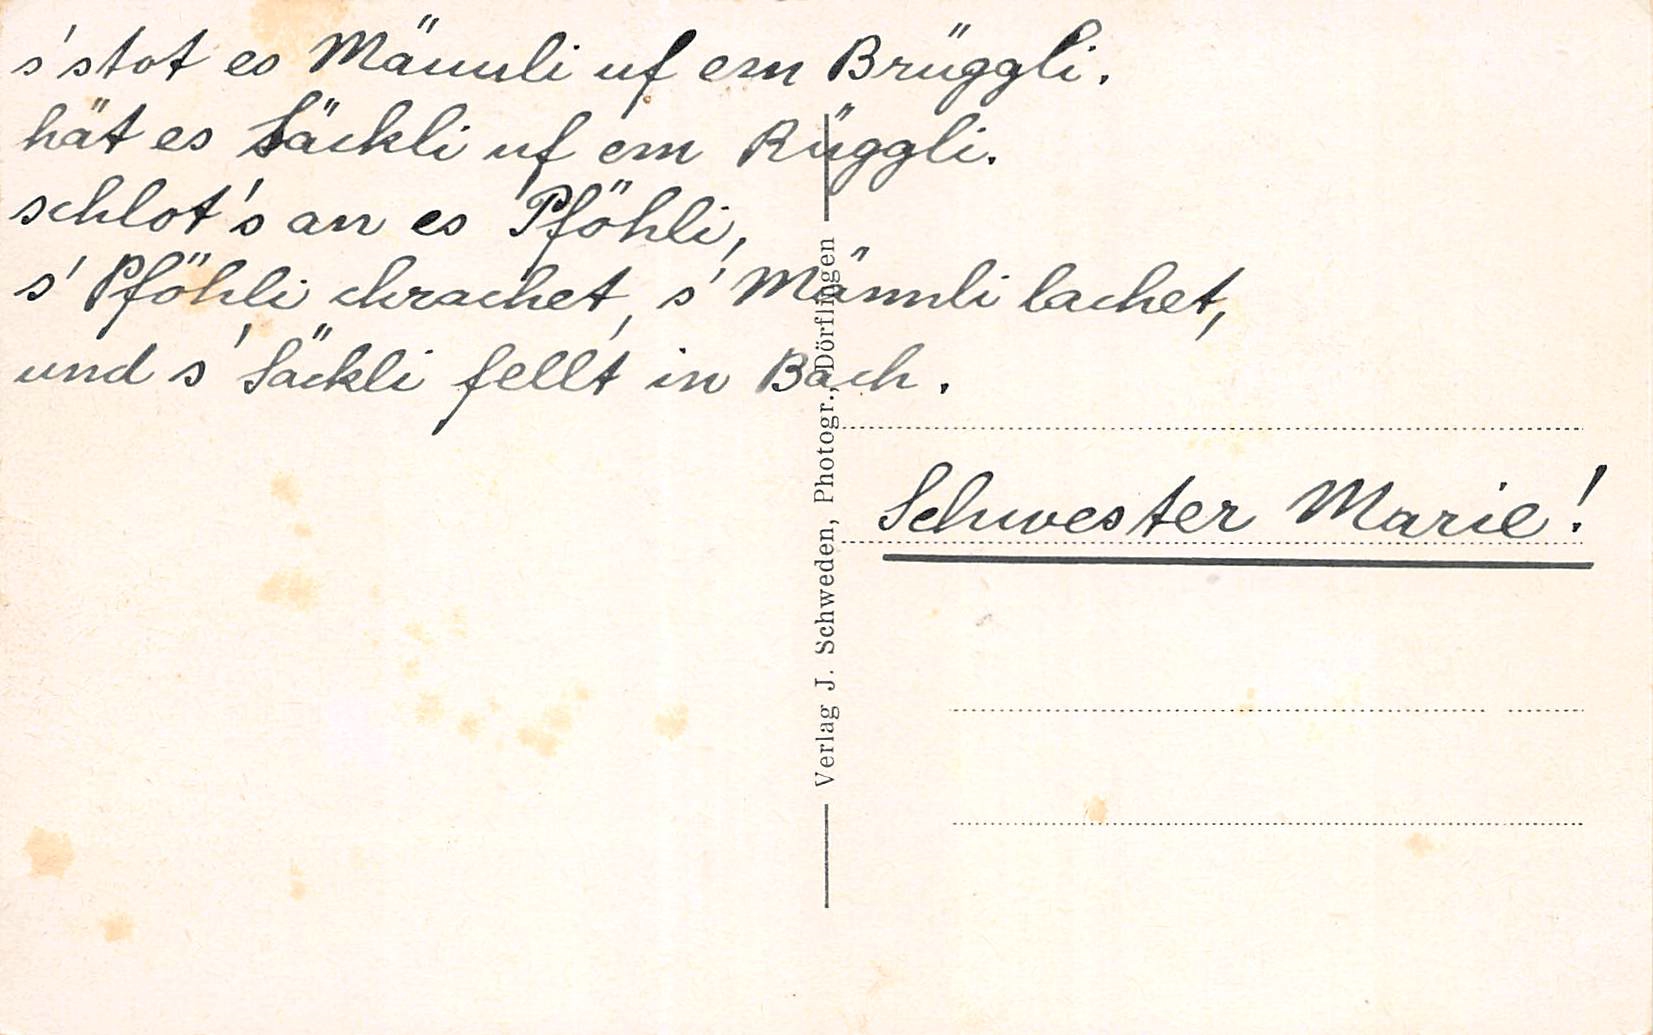 s'stot es Männli uf em Brüggli.
hät es Säckli uf em Rüggli.
schlot's an es Pföhli,
s' Pföhli chrachet, s' Männli lachet,
und s' Säckli fellt in Bach.
Schwester Marie!
Verlag J. Schweden, Photogr., Dörflingen